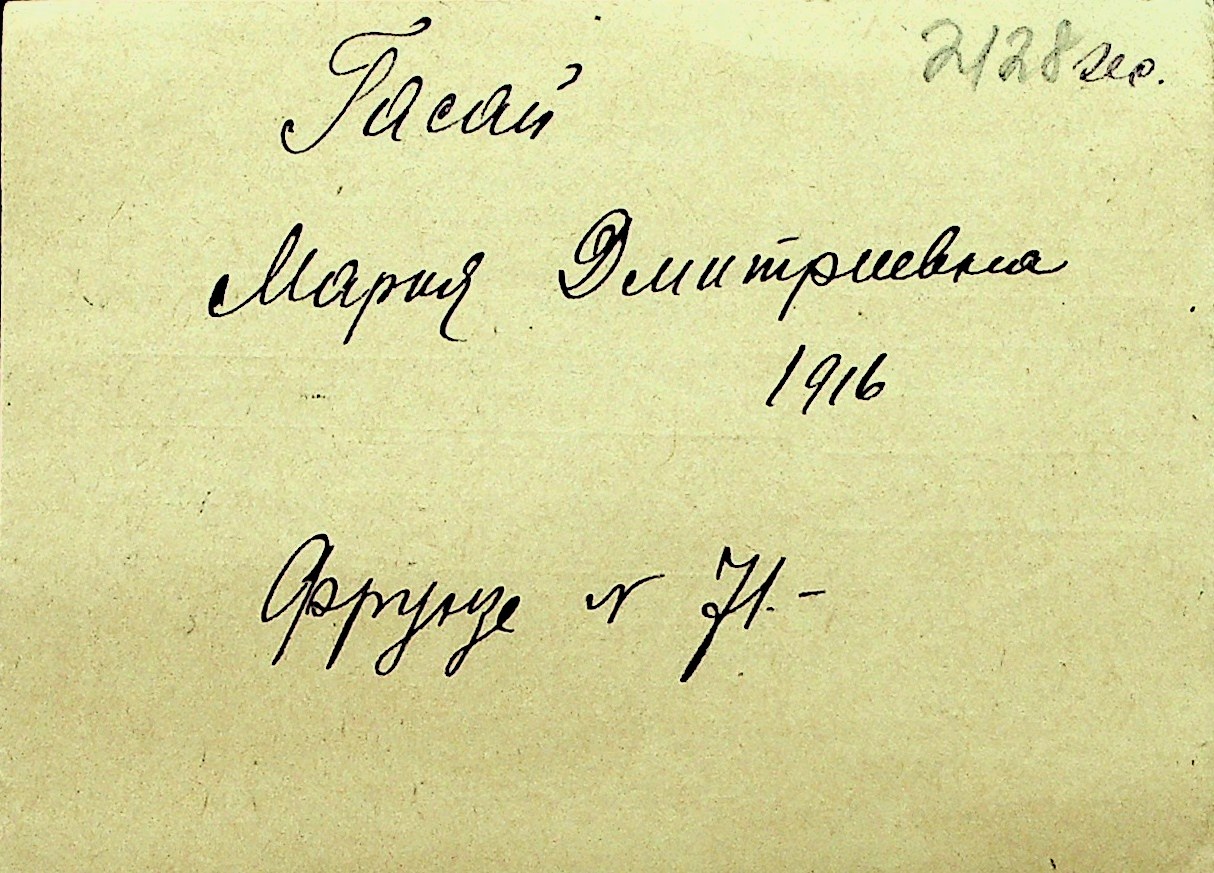 2128
Гасай
Мария Дмитриевна
1916
Фрунзе N 71.-